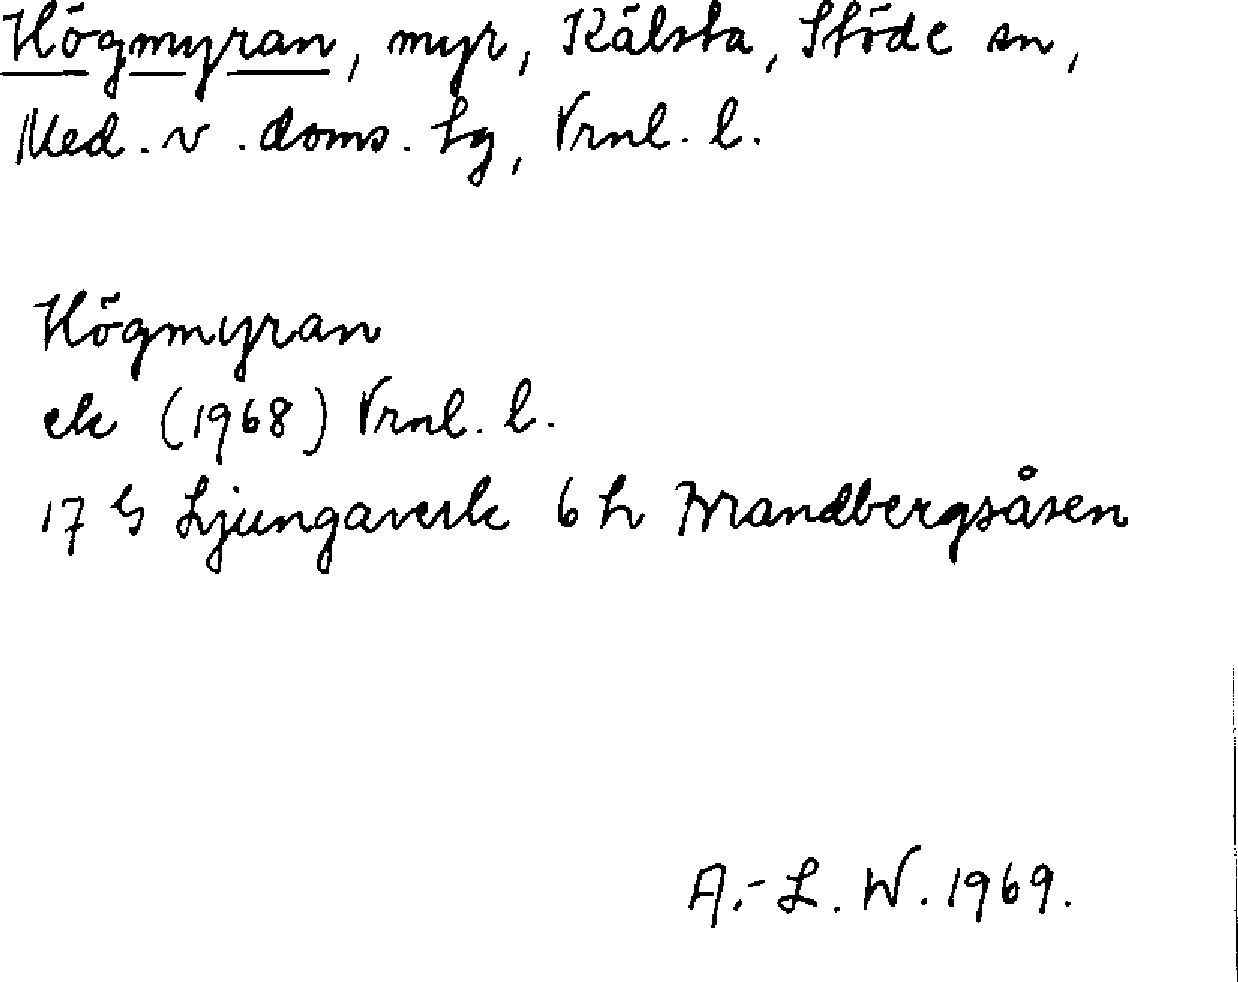 Högmyran, myr, Kälsta, Stöde sn,
Med. v. doms. tg, Vrnl. l.
Högmyran
ek (1968) Vrnl. l.
17 G Ljungaverk 6 h Brandbergsåsen
A.-L. W. 1969.